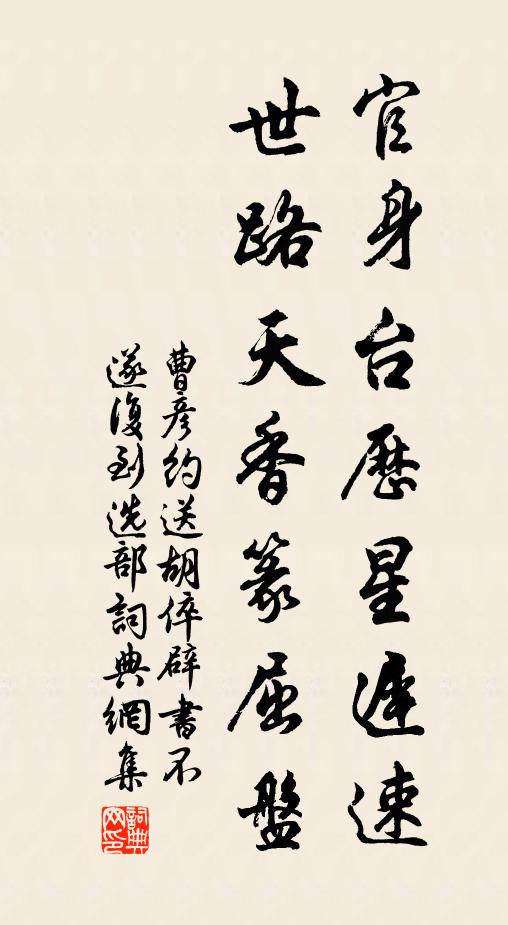 官身台歷星遲速
世路天香篆屈盤
曹彥約送胡倅辟書不
遂復到选部詞典網集
詞典网印